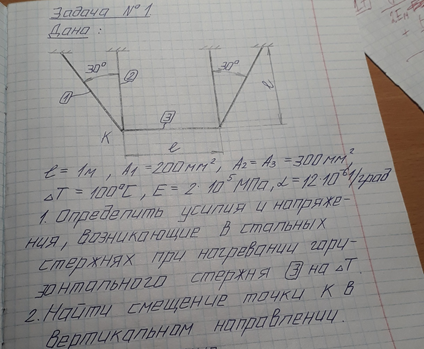 Задача №1
Дано:
30° 30°
1 2 3
К
l
l
l = 1м, A1 = 200мм², A2 = A3 = 300мм²,
ΔT = 100°C, E = 2·10⁵МПа, α = 12·10⁻⁶1/град
1. Определить усилия и напряже-
ния, возникающие в стальных
стержнях при нагревании гори-
зонтального стержня 3 на ΔT.
2. Найти смещение точки К в
вертикальном направлении.